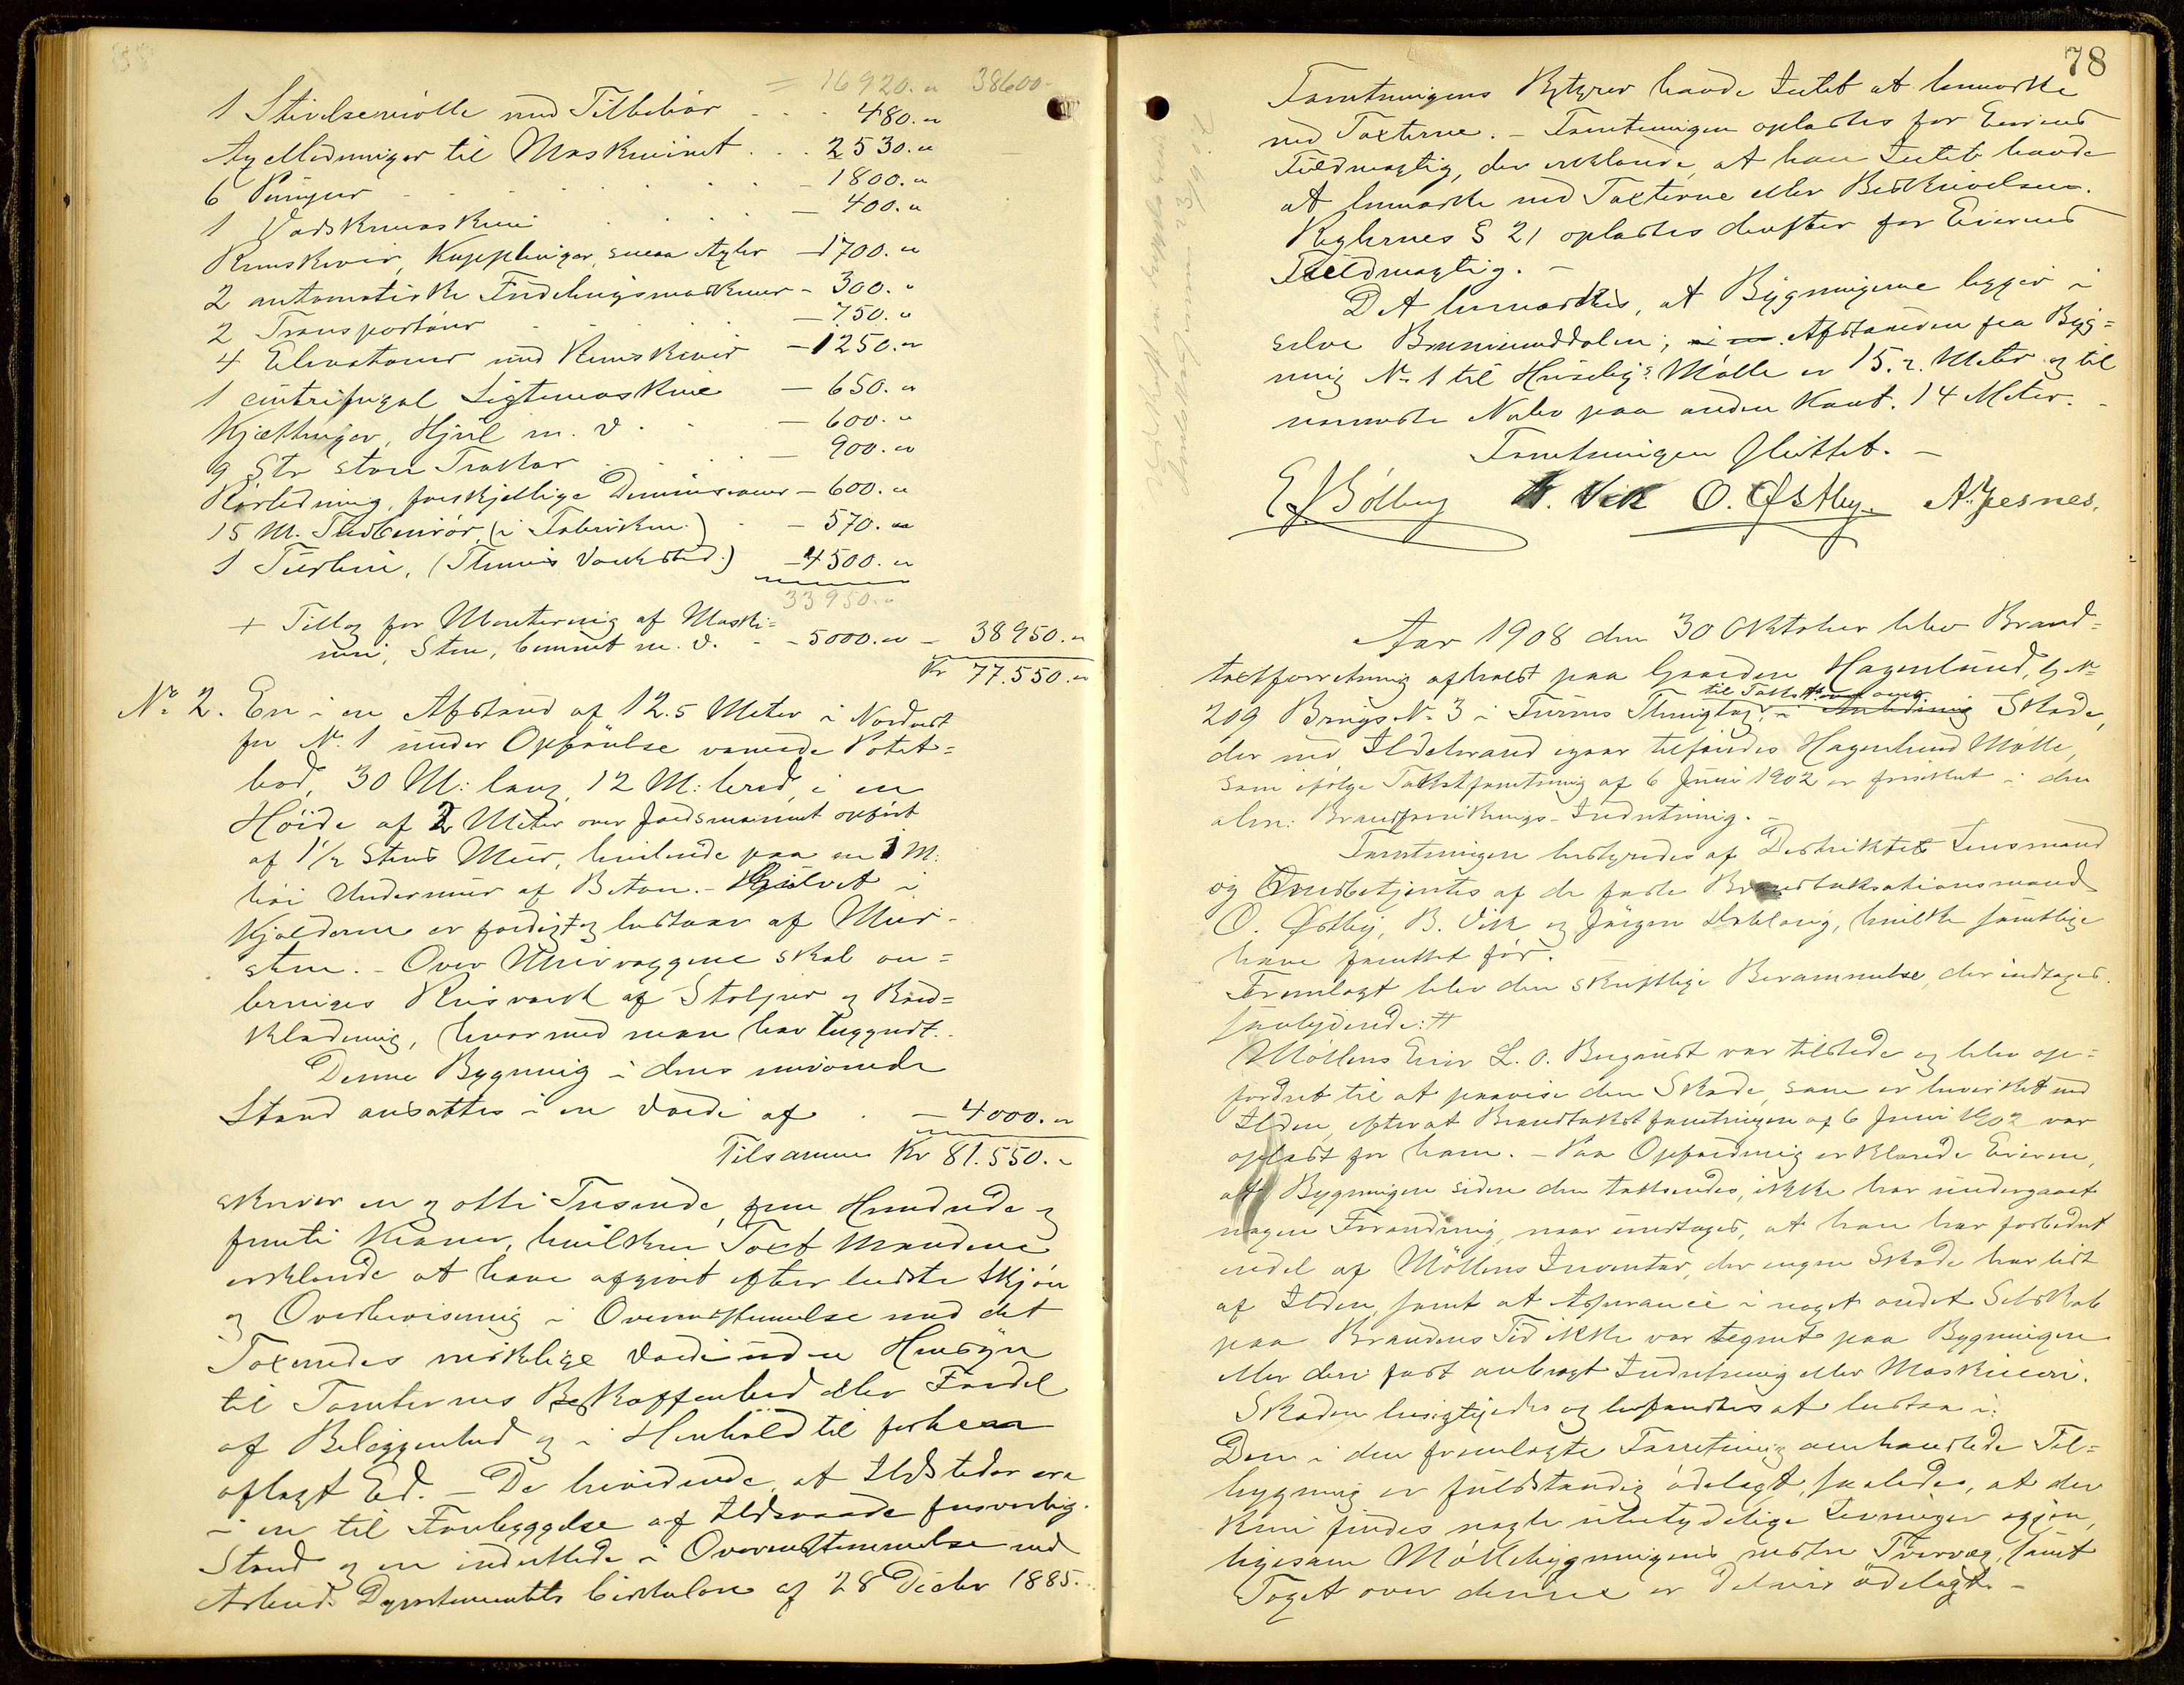 = 16920.„ 38600-
1 Stivelsemølle med Tilbehør . . . 480.„
Axelledninger til Maskineriet . . . 2530.„
6 Pumper - 1800.„
1 Vadskemaskine — 400.„
Remskiver, Kupplinger, smaa Axler —1700.„
2 automatiske Inddelingsmaskiner - 300.„
2 Transportører —750.„
4 Elevatorer med Remskiver —1250.„
1 centrifugal Sigtemaskine — 650.„
Kjættinger, Hjul m. v. — 600.„
9 Stk store Tragter — 900.„
Rørledning, forskjellige Dimmensioner — 600.„
15 M. Tudbenrør (i Fabriken) - 570.„
1 Turbin, (Thunes Værksted) —4500.„
33950.„
+ Tillæg for Montering af Maski=
neri, Sten, Cement m. v. - - 5000.„ — 38950.„
Kr 77.550.„
No 2. En i en Afstand af 12.5 Meter i Nordvest
fra No. 1 under Opførelse værende Potet=
bod, 30 M: lang, 12 M: bred, i en
Høide af 2 Meter over Jordsmonnet opført
af 1½ Stens Mur, hvilende paa en 1 M:
høi Undermur af Beton. - Gulvet i
Kjælderen er færdigt og bestaar af Mur-
sten. - Over Murvæggene skal an=
bringes Reisværk af Stolper og Bord=
klædning, hvormed man har begyndt.
Denne Bygning i dens nuværende
Stand ansattes i en Værdi af . — 4000.„
Tilsammen Kr 81.550.„
skriver en og otti Tusinde, fem Hundrede og
femti Kroner, hvilken Taxt Mændene
erklærede at have afgivet efter bedste Skjøn
og Overbevisning i Overensstemmelse med det
Taxeredes virkelige Værdi uden Hensyn
til Tomternes Beskaffenhed eller Fordel
af Beliggenhed og i Henhold til forhen
aflagt Ed. - De bevidnede, at Ildsteder ere
i en til Forebyggelse af Ildsvaade forsvarlig
Stand og er indrettede i Overensstemmelse med
Arbeids Departementets Cirkulære af 28 Decbr 1885.
78
Forretningens Bestyrer havde Intet at bemærke
ved Taxterne. - Forretningen oplæstes for Eierens
Fuldmægtig, der erklærede, at han Intet havde
at bemærke ved Taxterne eller Beskrivelsen.
Reglernes § 21 oplæstes derefter for Eierens
Fuldmægtig. -
Det bemærkes, at Bygningerne ligger i
selve Brumunddalen; Afstanden fra Byg=
ning No. 1 til Huseby's Mølle er 15.2. Meter og til
nærmeste Nabo paa anden Kant. 14 Meter. -
Forretningen sluttet. -
E Sølberg B. Vik O. Østby. A. Jesnes.
Aar 1908 den 30 Oktober blev Brand=
taxtforretning afholdt paa Gaarden Hagenlund, G. No
209 Brugs No. 3 i Furnes Thinglag, til Taxt over en Skade,
der ved Ildebrand igaar tilføiedes Hagenlund Mølle,
som ifølge Takstforretning af 6 Juni 1902 er forsikret i den
alm: Brandforsikrings-Indretning. -
Forretningen bestyredes af Distriktets Lensmand
og Ombetjentes af de faste Brandtaksationsmænd
O. Østby, B. Vik og Jørgen, hvilke samtlige
have forrettet før.
Fremlagt blev den skriftlige Berammelse, der indtages
saalydende: #
Møllens Eier L. O. Bergundt var tilstede og blev op=
fordret til at paavise den Skade, som er bevirket ved
Ilden, efterat Brandtakstforretningen af 6 Juni 1902 var
oplæst for ham. - Paa Opfordring erklærede Eieren,
at Bygningen siden den taxeredes, ikke har undergaaet
nogen Forandring, naar undtages, at han har forbedret
endel af Møllens Inventar, der ingen Skade har lidt
af Ilden, samt at Assurance i noget andet Selskab
paa Brandens Tid ikke var tegnet paa Bygningen
eller deri fast anbragt Indretning eller Maskineri.
Skaden besigtigedes og befandtes at bestaa i:
Den i den fremlagte Forretning omhandlede Til=
bygning er fuldstændig ødelagt, saaledes, at der
kun findes nogle ubetydelige Levninger igjen,
ligesom Møllebygningens vestre Tvervæg, samt
Taget over denne er delvis ødelagt. -